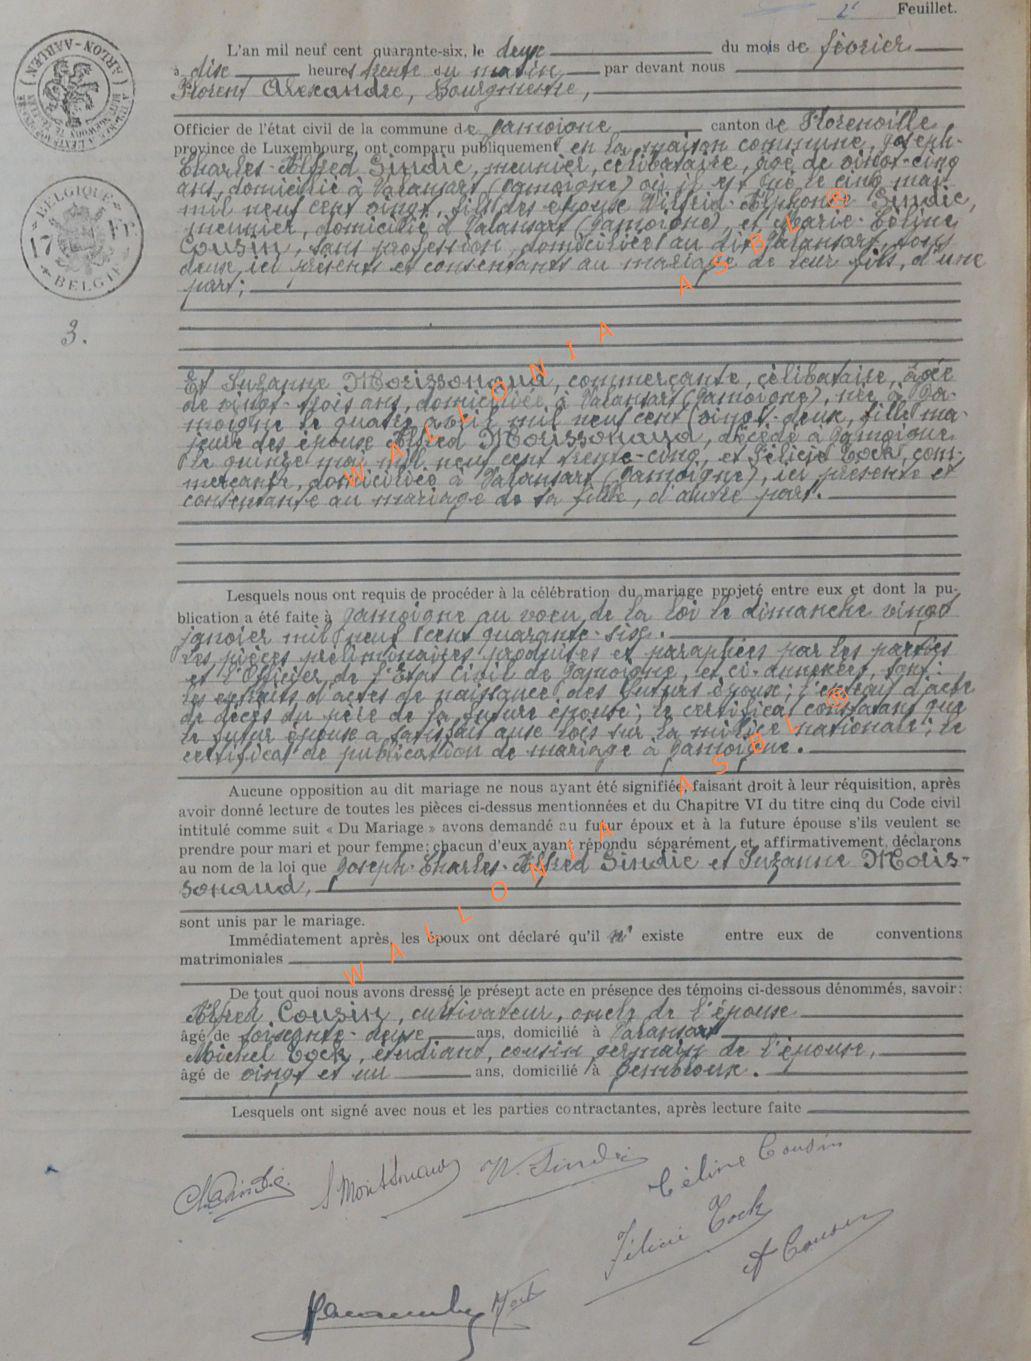 2e Feuillet.
L'an mil neuf cent quarante-six, le deux du mois de février
à dix heures trente du matin par devant nous
Florent Alexandre, Bourgmestre,
Officier de l'état civil de la commune de Jamoigne canton de Florenville
province de Luxembourg, ont comparu publiquement en la maison commune, Joseph-
Charles-Alfred Sindic, meunier, célibataire, âgé de vingt-cinq
ans, domicilié à Valansart (Jamoigne) où il est né le cinq mai
mil neuf cent vingt, fils des époux Wilfrid-Alphonse Sindic,
meunier, domicilié à Valansart (Jamoigne), et Marie-Céline
Cousin, sans profession, domiciliée au dit Valansart, tous
deux, ici présents et consentants au mariage de leur fils, d'une
part;
3.
Et Suzanne Morissonaud, commerçante, célibataire, âgée
de vingt-trois ans, domiciliée à Valansart (Jamoigne), née à Ja-
moigne le quatre avril mil neuf cent vingt-deux, fille ma-
jeure des époux Alfred Morissonaud, décédé à Jamoigne
le quinze mai mil neuf cent trente-cinq, et Félicie Tock, com-
merçante, domiciliée à Valansart (Jamoigne), ici présente et
consentante au mariage de sa fille, d'autre part.
Lesquels nous ont requis de procéder à la célébration du mariage projeté entre eux et dont la pu-
blication a été faite à Jamoigne au voeu de la loi le dimanche vingt
janvier mil neuf cent quarante-six.
Les pièces préliminaires produites et paraphées par les parties
et l'Officier de l'Etat Civil de Jamoigne, et ci-annexées, sont:
les extraits d'actes de naissance des futurs époux; l'extrait d'acte
de décès du père de la future épouse; le certificat constatant que
le futur époux a satisfait aux lois sur la milice nationale; le
certificat de publication de mariage à Jamoigne.
Aucune opposition au dit mariage ne nous ayant été signifiée, faisant droit à leur réquisition, après
avoir donné lecture de toutes les pièces ci-dessus mentionnées et du Chapitre VI du titre cinq du Code civil
intitulé comme suit « Du Mariage » avons demandé au futur époux et à la future épouse s'ils veulent se
prendre pour mari et pour femme; chacun d'eux ayant répondu séparément et affirmativement, déclarons
au nom de la loi que Joseph-Charles-Alfred Sindic et Suzanne Moris-
sonaud,
sont unis par le mariage.
Immédiatement après, les époux ont déclaré qu'il n'existe entre eux de conventions
matrimoniales
De tout quoi nous avons dressé le présent acte en présence des témoins ci-dessous dénommés, savoir:
Alfred Cousin, cultivateur, oncle de l'épouse
âgé de soixante-deux ans, domicilié à Valansart
Michel Tock, étudiant, cousin germain de l'épouse,
âgé de vingt et un ans, domicilié à Gembloux.
Lesquels ont signé avec nous et les parties contractantes, après lecture faite
W. Sindic
Céline Cousin
Félicie Tock
A Cousin
BELGIQUE
BELGIE
WALLONIA ASBL ®
WALLONIA ASBL ®